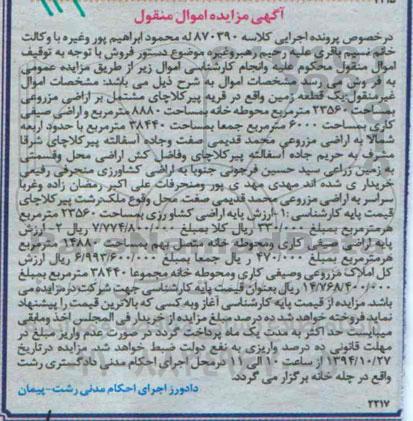 آگهی مزایده اموال منقول
درخصوص پرونده اجرایی کلاسه ۸۷۰۳۹۰ له محمود ابراهیم پور وغیره با وکالت
خانم نسیم باقری علیه رحیم رهبر وغیره موضوع دستور فروش با توجه به توقیف
اموال منقول محکوم علیه وانجام کارشناسی اموال زیر از طریق مزایده عمومی
به فروش می رسد. مشخصات اموال به شرح ذیل می باشد: مشخصات اموال
غیرمنقول یک قطعه زمین واقع در قریه پیرکلاچای مشتمل بر اراضی مزروعی
بمساحت ۲۳۵۶۰ مترمربع محوطه خانه بمساحت ۸۸۸۰ مترمربع واراضی صیفی
کاری بمساحت ۶۰۰۰ مترمربع جمعا بمساحت ۳۸۴۴۰ مترمربع با حدود اربعه
شمالا به اراضی مزروعی محمد قدیمی صفت وجاده آسفالته پیرکلاچای شرقا
به حریم جاده آسفالته پیرکلاچای وفاضل کش اراضی محل وقسمتی
به زمین زراعی سید حسین فرجونی جنوبا به اراضی کشاورزی منحرفی رفیعی
خریدار ی شده اند مهدی مهد ی پور ومنحرفات علی اکبر رمضان زاده وغربا
سراسر به اراضی مزروعی محمد قدیمی صفت. محل وقوع ملک رشت پیرکلاچای
قیمت پایه کارشناسی : ۱-ارزش پایه اراضی کشاورزی بمساحت ۲۳۵۶۰ مترمربع
هرمترمربع بمبلغ ۳۳۰/۰۰۰ ریال کلا بمبلغ ۷/۷۷۴/۸۰۰/۰۰۰ ریال ۲-ارزش
پایه اراضی صیفی کاری ومحوطه خانه متصل بهم بمساحت ۱۴۸۸۰ مترمربع
هرمترمربع بمبلغ ۴۷۰/۰۰۰ ر یال جمعا بمبلغ ۶/۹۹۳/۶۰۰/۰۰۰ ریال جمع
کل املاک مزروعی وصیفی کاری ومحوطه خانه مجموعا ۳۸۴۴۰ مترمربع بمبلغ
۱۴/۷۶۸/۴۰۰/۰۰۰ ریال بعنوان قیمت پایه کارشناسی جهت شرکت در مزایده می
باشد. مزایده از قیمت پایه کارشناسی آغاز وبه کسی که بالاترین قیمت را پیشنهاد
نماید فروخته خواهد شد ده درصد مبلغ مزایده از خریدار فی المجلس اخذ ومابقی
میبایست حداکثر به مدت یک ماه پرداخت گردد در صورت عدم واریز مبلغ در
مهلت قانونی ده درصد واریزی به نفع دولت ضبط خواهد شد. مزایده درتاریخ
۱۳۹۴/۱۰/۲۷ از ساعت ۱۰ الی ۱۱ درمحل اجرای احکام مدنی دادگستری رشت
واقع در چله خانه برگزار می گردد.
دادورز اجرای احکام مدنی رشت-پیمان
۲۲۱۷